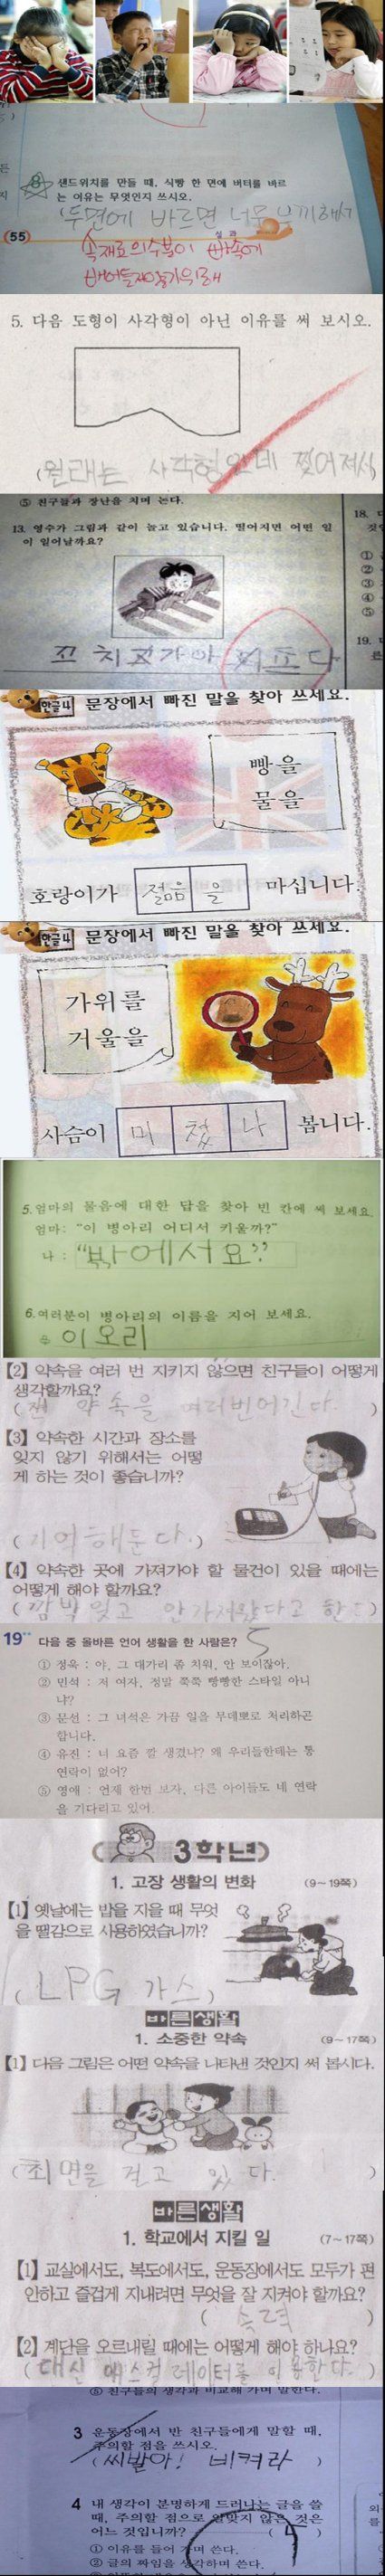 8 샌드위치를 만들 때, 식빵 한 면에 버터를 바르
는 이유는 무엇인지 쓰시오.
(두면에 바르면 너무 느끼해서
(55)
속재료의수분이 빵속에
배어들지않기위해
5. 다음 도형이 사각형이 아닌 이유를 써 보시오.
(원래는 사각형인데 찢어져서)
⑤ 친구들과 장난을 치며 논다.
13. 영수가 그림과 같이 놀고 있습니다. 떨어지면 어떤 일
이 일어날까요?
18.
①
②
③
④
⑤
19.
꼬치가 아프다
한글나 문장에서 빠진 말을 찾아 쓰세요.
빵을
물을
호랑이가 젊음을 마십니다.
한글나 문장에서 빠진 말을 찾아 쓰세요.
가위를
거울을
사슴이 미쳤나 봅니다.
5. 엄마의 물음에 대한 답을 찾아 빈 칸에 써 보세요.
엄마: "이 병아리 어디서 키울까?"
나 : "밖에서요?"
6. 여러분이 병아리의 이름을 지어 보세요.
⇨ 이오리
【2】 약속을 여러 번 지키지 않으면 친구들이 어떻게
생각할까요?
(쟨 약속을 여러번어긴다.)
【3】 약속한 시간과 장소를
잊지 않기 위해서는 어떻
게 하는 것이 좋습니까?
(기억해둔다.)
【4】 약속한 곳에 가져가야 할 물건이 있을 때에는
어떻게 해야 할까요?
(깜박 잊고 안가져왔다고 한다)
19 다음 중 올바른 언어 생활을 한 사람은? 5
① 정욱 : 야, 그 대가리 좀 치워, 안 보이잖아.
② 민석 : 저 여자, 정말 쭉쭉 빵빵한 스타일 아니
냐?
③ 문선 : 그 녀석은 가끔 일을 무데뽀로 처리하곤
합니다.
④ 유진 : 너 요즘 깔 생겼냐? 왜 우리들한테는 통
연락이 없어?
⑤ 영애 : 언제 한번 보자, 다른 아이들도 네 연락
을 기다리고 있어.
3학년
1. 고장 생활의 변화 (9~19쪽)
【1】 옛날에는 밥을 지을 때 무엇
을 땔감으로 사용하였습니까?
(LPG 가스)
바른생활
1. 소중한 약속 (9~17쪽)
【1】 다음 그림은 어떤 약속을 나타낸 것인지 써 봅시다.
(최면을 걸고 있다.)
바른생활
1. 학교에서 지킬 일 (7~17쪽)
【1】 교실에서도, 복도에서도, 운동장에서도 모두가 편
안하고 즐겁게 지내려면 무엇을 잘 지켜야 할까요?
(속력)
【2】 계단을 오르내릴 때에는 어떻게 해야 하나요?
(대신 에스컬레이터를 이용한다.)
⑤ 친구들의 생각과 비교해 가며 말한다.
3 운동장에서 반 친구들에게 말할 때,
주의할 점을 쓰시오.
(씨발아! 비켜라)
4 내 생각이 분명하게 드러나는 글을 쓸
때, 주의할 점으로 알맞지 않은 것은
어느 것입니까? (4)
① 이유를 들어 가며 쓴다.
② 글의 짜임을 생각하며 쓴다.